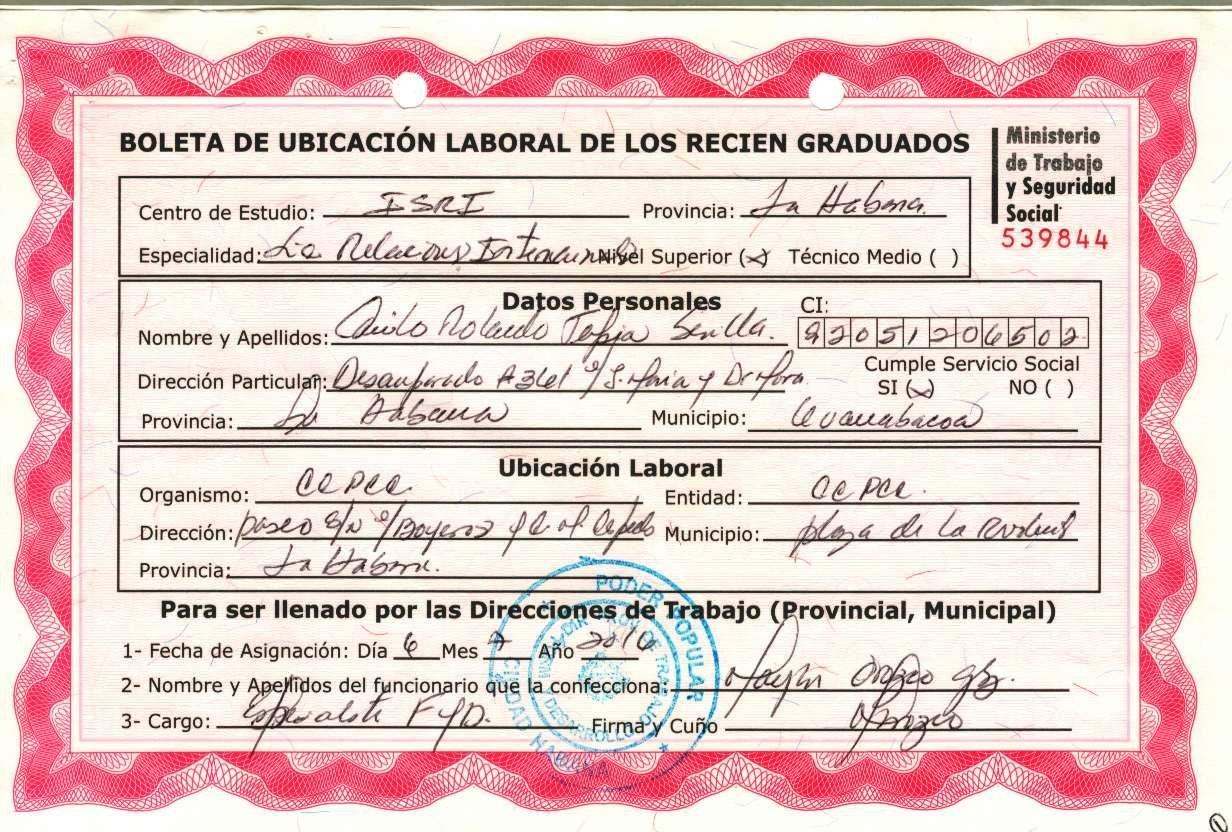 BOLETA DE UBICACIÓN LABORAL DE LOS RECIEN GRADUADOS
Ministerio
de Trabajo
y Seguridad
Social
539844
Centro de Estudio: ISRI Provincia: La Habana
Especialidad: Lic. Relaciones Internacionales Nivel Superior (x) Técnico Medio ( )
Datos Personales
CI:
Nombre y Apellidos: Rolando Tapia Sevilla. 92051206502
Dirección Particular: Desamparado A361 e/ S. María y Dr Mora
Cumple Servicio Social
SI (x) NO ( )
Provincia: La Habana Municipio: Guanabacoa
Ubicación Laboral
Organismo: CCPCC Entidad: CCPCC.
Dirección: paseo S/N e/ Boyeros y Municipio: plaza de La Revoluc
Provincia: La Habana.
Para ser llenado por las Direcciones de Trabajo (Provincial, Municipal)
1- Fecha de Asignación: Día 6 Mes 7 Año 2016
2- Nombre y Apellidos del funcionario que la confecciona: Orozco
3- Cargo: Especialista F y D. Firma y Cuño Orozco
PODER POPULAR
CIUDAD HABANA
DIRECCION DE TRABAJO
Y DESARROLLO